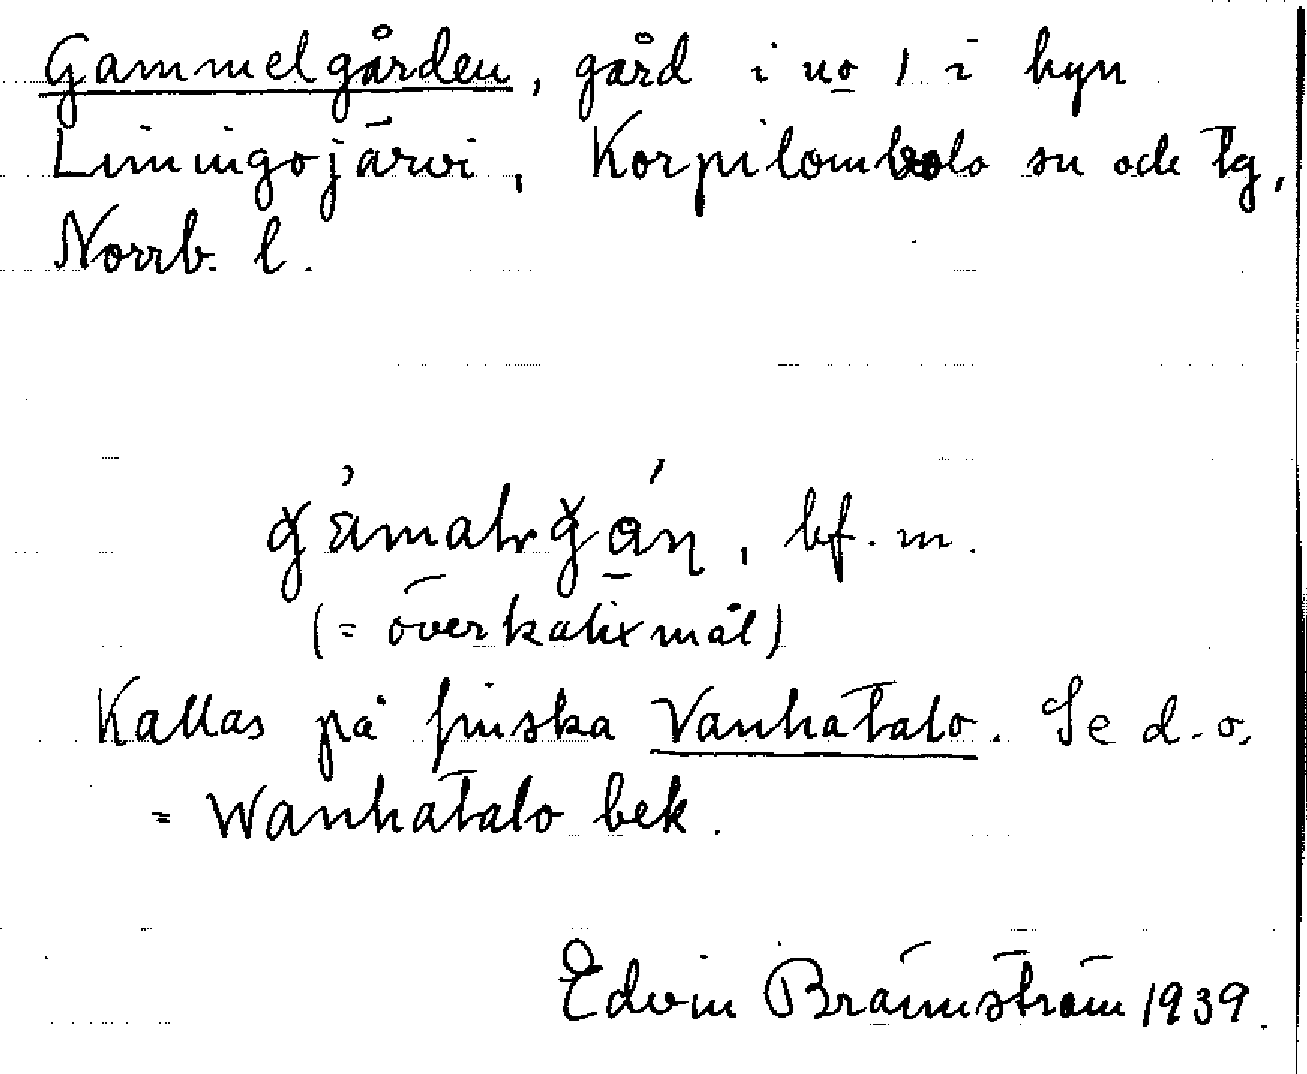 Gammelgården, gård i no 1 i byn
Liiningojärvi, Korpilombolo sn och tg,
Norrb. l.
bf. m.
(= överkalixmål)
Kallas på finska Vanhatalo. Se d. o.
= Wanhatalo bek.
Edvin Brännström 1939.